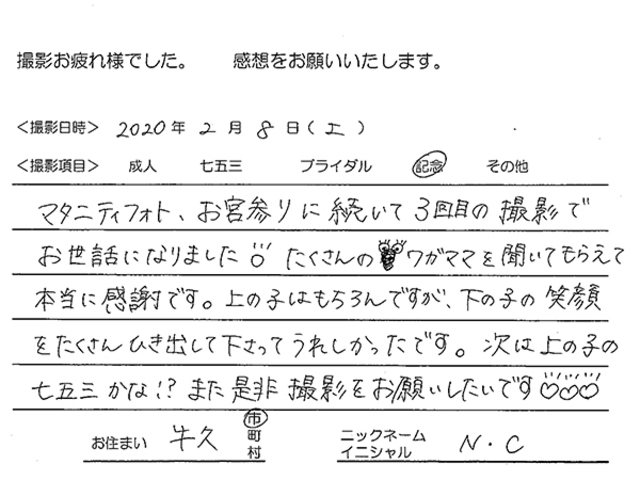 撮影お疲れ様でした。 感想をお願いいたします。
<撮影日時> 2020年 2月 8日(土)
<撮影項目> 成人 七五三 ブライダル 記念 その他
マタニティフォト、お宮参りに続いて3回目の撮影で
お世話になりました たくさんの ワガママを聞いてもらえて
本当に感謝です。上の子はもちろんですが、下の子の笑顔
をたくさんひき出して下さってうれしかったです。次は上の子の
七五三かな!? また是非撮影をお願いしたいです♡♡♡
お住まい 牛久 市 町 村 ニックネーム イニシャル N・C